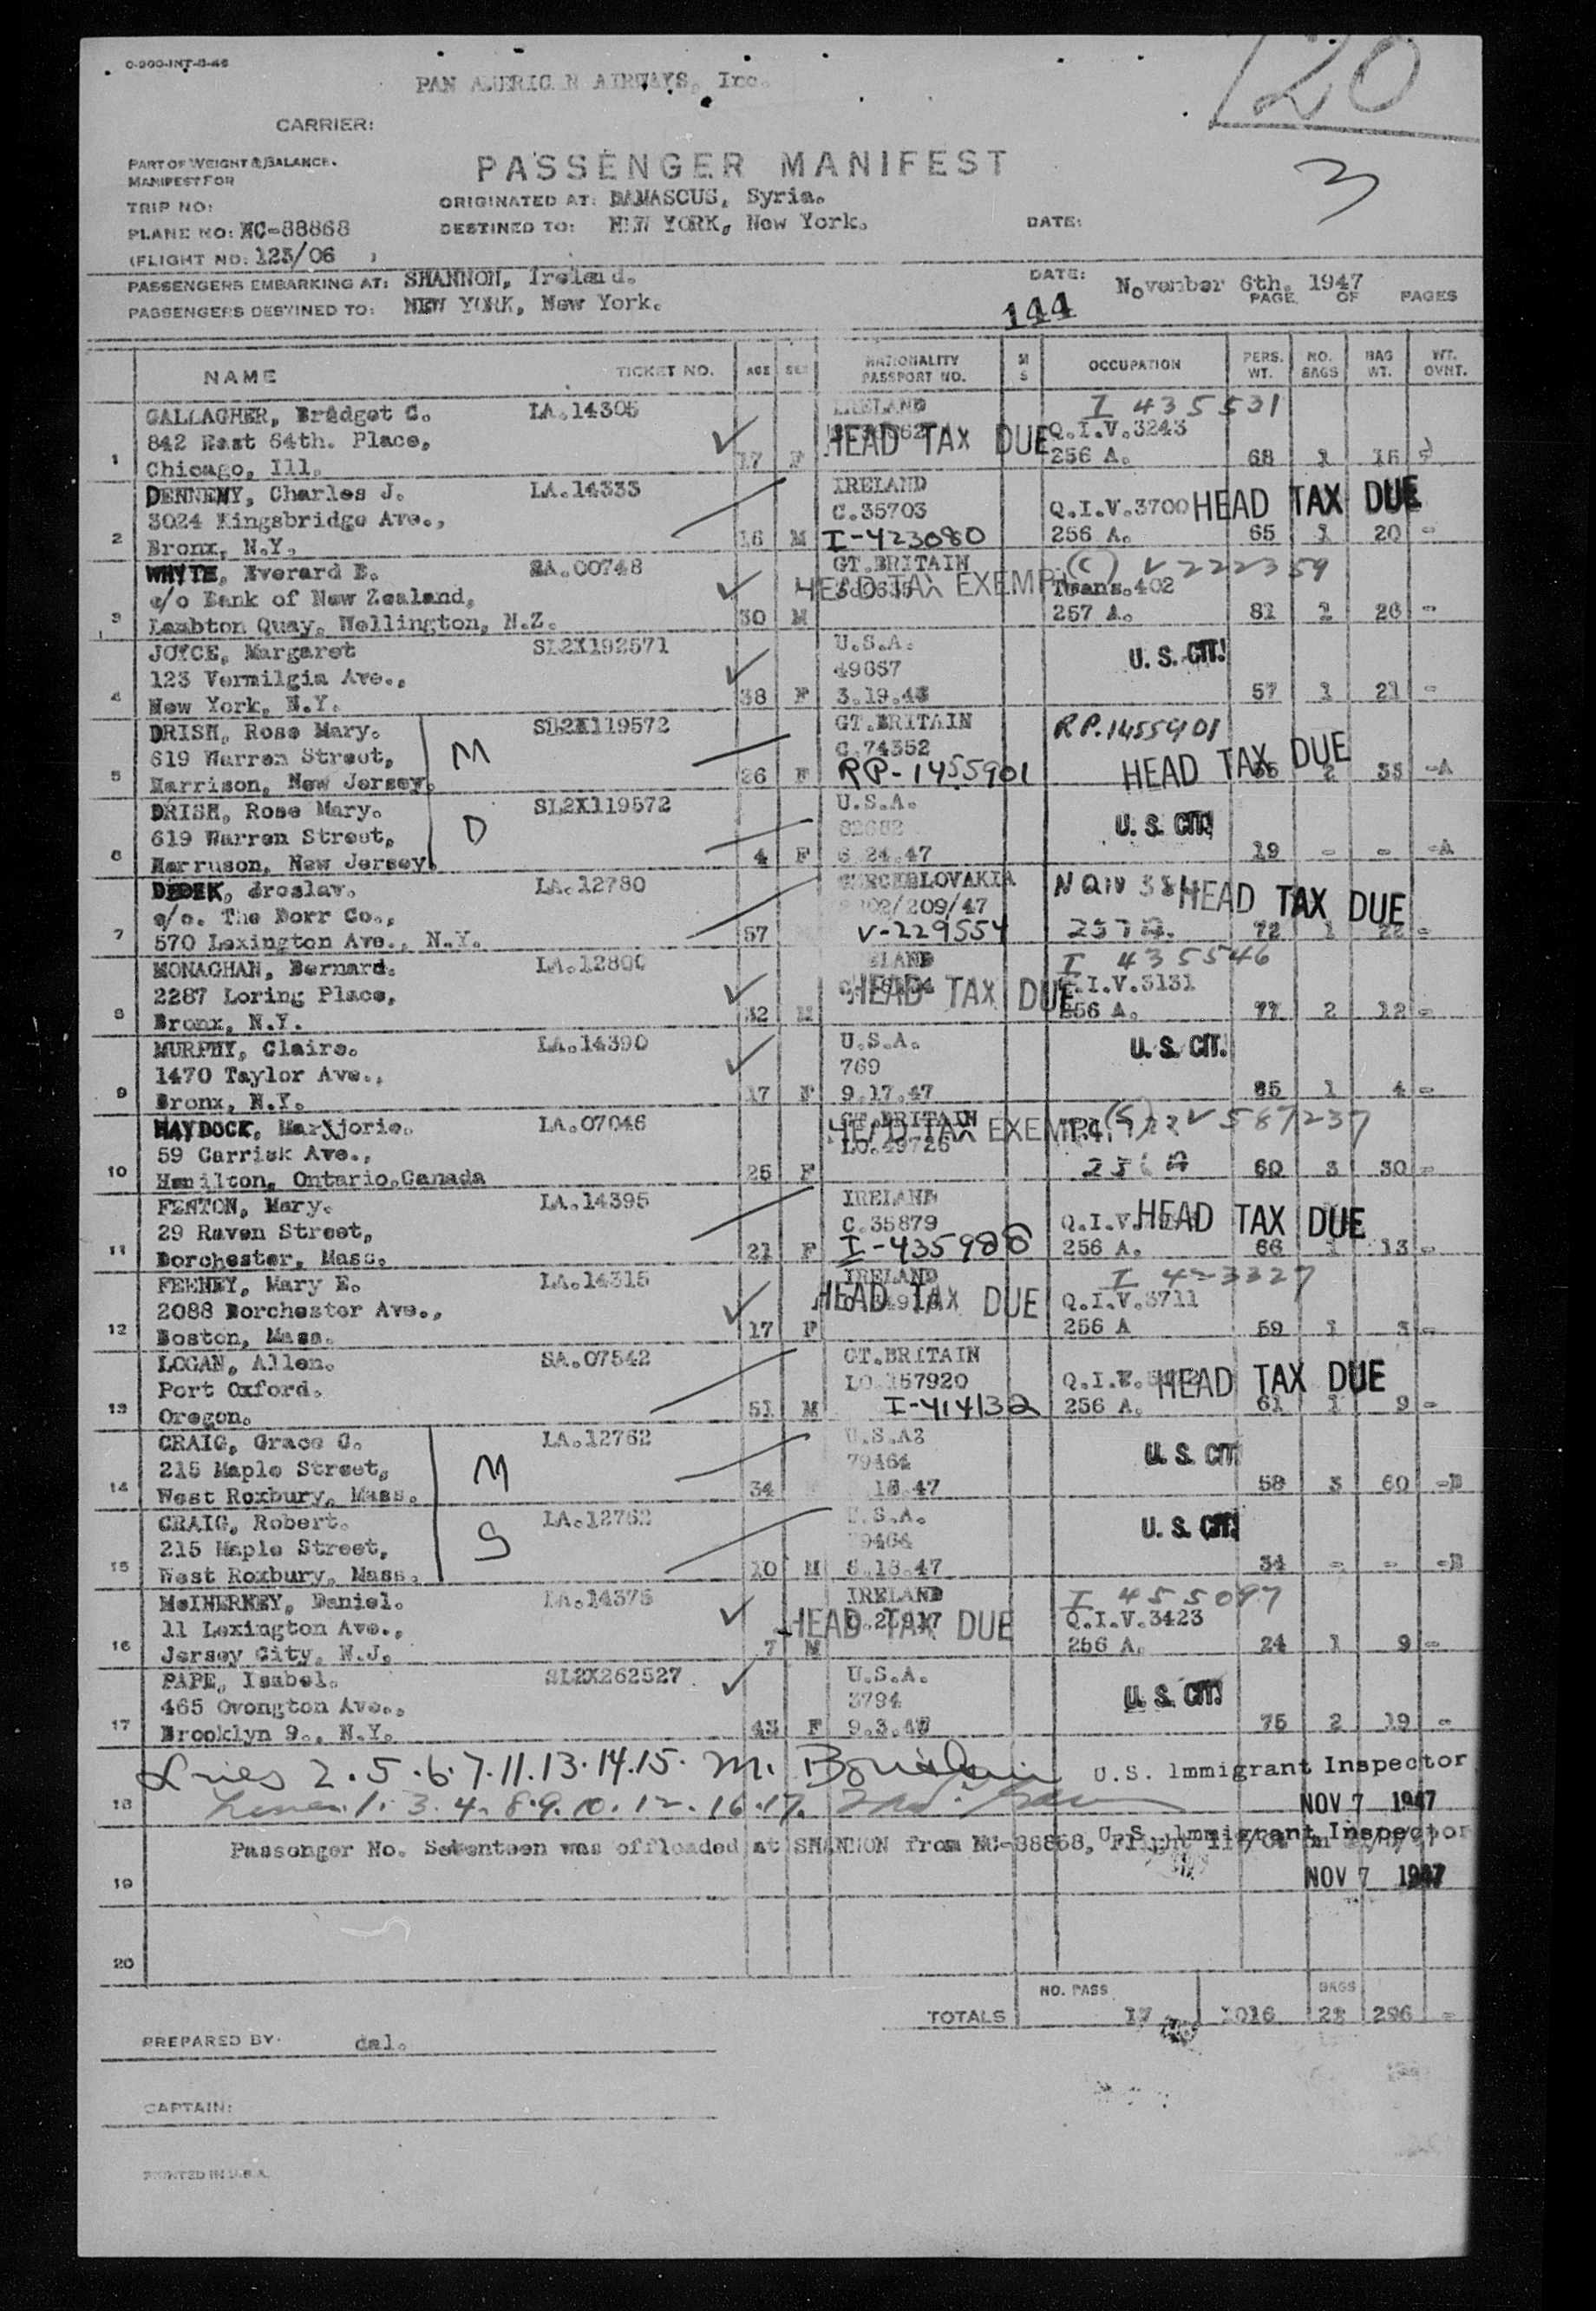 0-900-INT-8-46
PAN AMERICAN AIRWAYS, Inc.
120
CARRIER:
3
PART OF WEIGHT & BALANCE.
MANIFEST FOR
PASSENGER MANIFEST
TRIP NO:
ORIGINATED AT: DAMASCUS, Syria.
PLANE NO: NC-88868
DESTINED TO: NEW YORK, New York.
DATE:
(FLIGHT NO: 125/06 )
PASSENGERS EMBARKING AT: SHANNON, Ireland.
DATE: November 6th. 1947
PASSENGERS DESTINED TO: NEW YORK, New York.
144
PAGE OF PAGES
NAME TICKET NO. AGE SEX NATIONALITY PASSPORT NO. M S OCCUPATION PERS. WT. NO. BAGS BAG WT. WT. OVNT.
GALLAGHER, Bridget C. LA.14305 IRELAND I 435531
842 East 64th. Place, HEAD TAX DUE Q.I.V.3243
1 Chicago, Ill. 17 F 256 A. 68 1 15 -
DENNEHY, Charles J. LA.14333 IRELAND
3024 Kingsbridge Ave., C.35703 Q.I.V.3700 HEAD TAX DUE
2 Bronx, N.Y. 16 M I-423080 256 A. 65 1 20 -
WHYTE, Everard E. SA.00748 GT.BRITAIN (C) V222359
c/o Bank of New Zealand, HEAD TAX EXEMPT Trans.402
3 Lambton Quay, Wellington, N.Z. 30 M 257 A. 81 2 26 -
JOYCE, Margaret SL2X192571 U.S.A. U. S. CIT.
123 Vermilgia Ave., 49857
4 New York, N.Y. 38 F 3.19.43 57 1 21 -
DRISH, Rose Mary. SL2X119572 GT.BRITAIN RP.1455901
619 Warren Street, M C.74352 HEAD TAX DUE
5 Harrison, New Jersey. 26 F RP-1455901 2 35 -A
DRISH, Rose Mary. SL2X119572 U.S.A.
619 Warren Street, D 82682 U. S. CIT.
6 Harruson, New Jersey. 4 F 6 24.47 19 - - -A
DEDEK, droslav. LA.12780 HEAD TAX DUE
c/o. The Dorr Co., 209/47
7 570 Lexington Ave., N.Y. 57 V-229554 237A. 72 1 22 -
MONAGHAN, Bernard. LA.12800 I 435546
2287 Loring Place, HEAD TAX DUE Q.I.V.3131
8 Bronx, N.Y. 32 M 256 A. 77 2 12 -
MURPHY, Claire. LA.14390 U.S.A. U. S. CIT.
1470 Taylor Ave., 769
9 Bronx, N.Y. 17 F 9.17.47 85 1 4 -
HAYDOCK, Marjorie. LA.07046 GT.BRITAIN HEAD TAX EXEMPT V587237
59 Carrick Ave., LO.49726
10 Hamilton, Ontario,Canada 25 F 256 A 60 3 30 -
FENTON, Mary. LA.14395 IRELAND
29 Raven Street, C.35879 Q.I.V. HEAD TAX DUE
11 Dorchester, Mass. 21 F I-435986 256 A. 66 1 13 -
FEENEY, Mary E. LA.14315 IRELAND I 423327
2088 Dorchester Ave., HEAD TAX DUE Q.I.V.3711
12 Boston, Mass. 17 F 256 A 59 1 3 -
LOGAN, Allen. SA.07542 GT.BRITAIN
Port Oxford. LO.157920 Q.I.V. HEAD TAX DUE
13 Oregon. 51 M I-414132 256 A. 61 1 9 -
CRAIG, Grace C. LA.12762 U.S.A.
215 Maple Street, M 79464 U. S. CIT
14 West Roxbury, Mass. 34 18.47 58 3 60 -B
CRAIG, Robert. LA.12762 U.S.A.
215 Maple Street, S 79464 U. S. CIT.
15 West Roxbury, Mass. 10 M 8.18.47 34 - - -B
McINERNEY, Daniel. LA.14375 IRELAND I 455097
11 Lexington Ave., HEAD TAX DUE Q.I.V.3423
16 Jersey City, N.J. 7 M 256 A. 24 1 9 -
PAPE, Isabel. SL2X262527 U.S.A.
465 Ovongton Ave., 3794 U. S. CIT.
17 Brooklyn 9., N.Y. 43 F 9.3.47 75 2 19 -
Lines 2.5.6.7.11.13.14.15. M. U.S. Immigrant Inspector
18 Lines 1.3.4.8.9.10.12.16.17. NOV 7 1947
Passenger No. Seventeen was offloaded at SHANNON from NC-88868, Flight
U.S. Immigrant Inspector
19 NOV 7 1947
20
TOTALS NO. PASS 17 1016 BAGS 21 296 -
PREPARED BY. dal.
CAPTAIN:
PRINTED IN U.S.A.